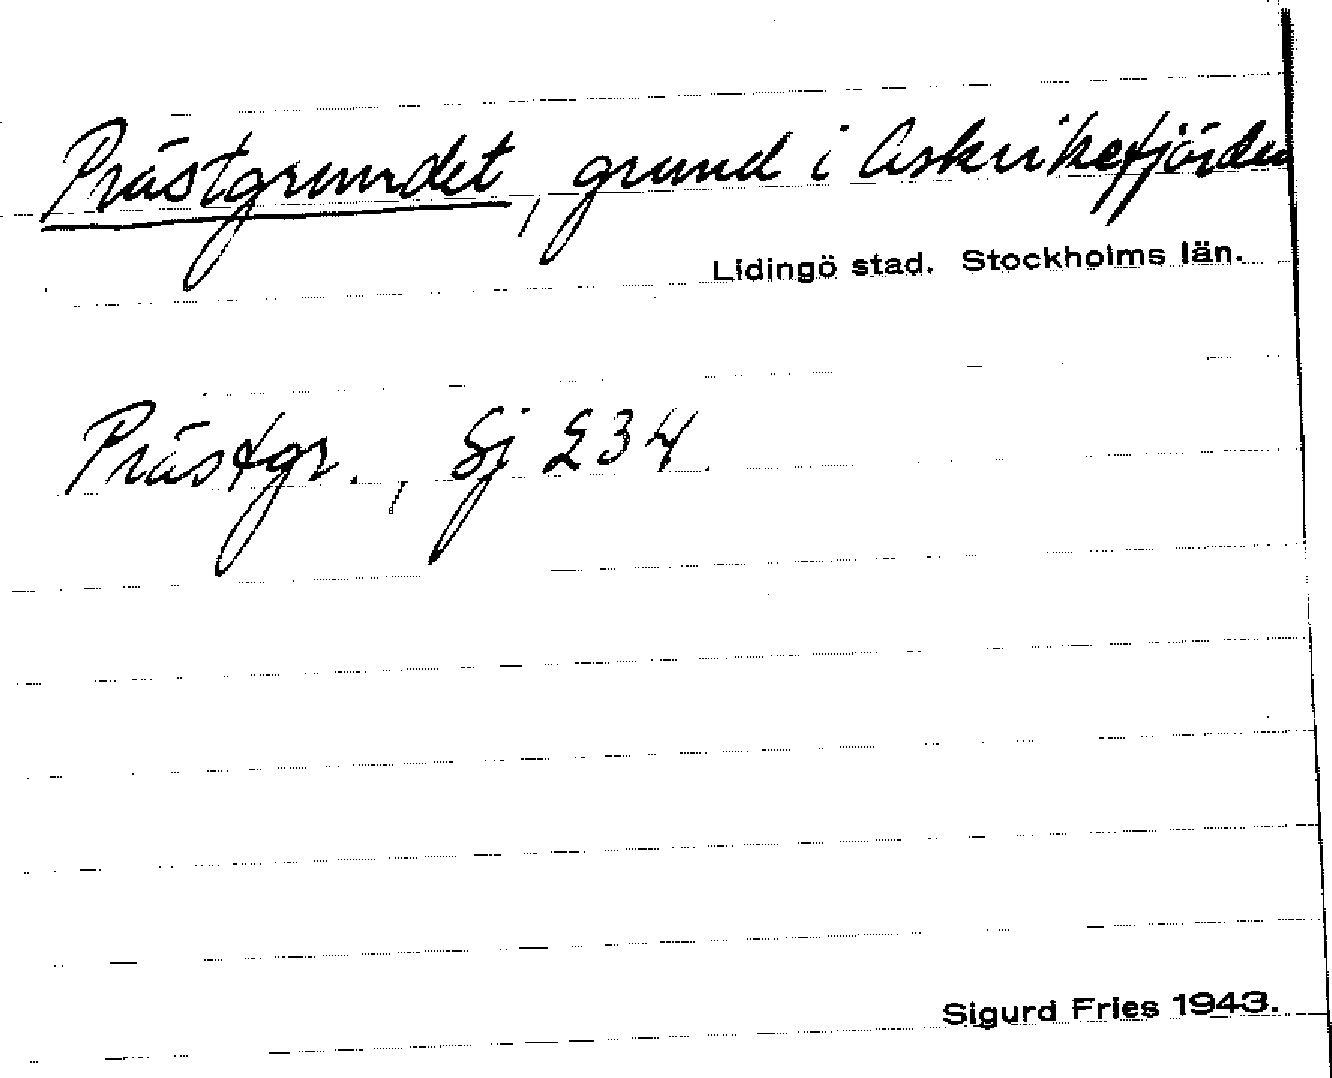 Prästgrundet, grund i Askrikefjärden
Lidingö stad. Stockholms län.
Prästgr., Sj 234.
Sigurd Fries 1943.